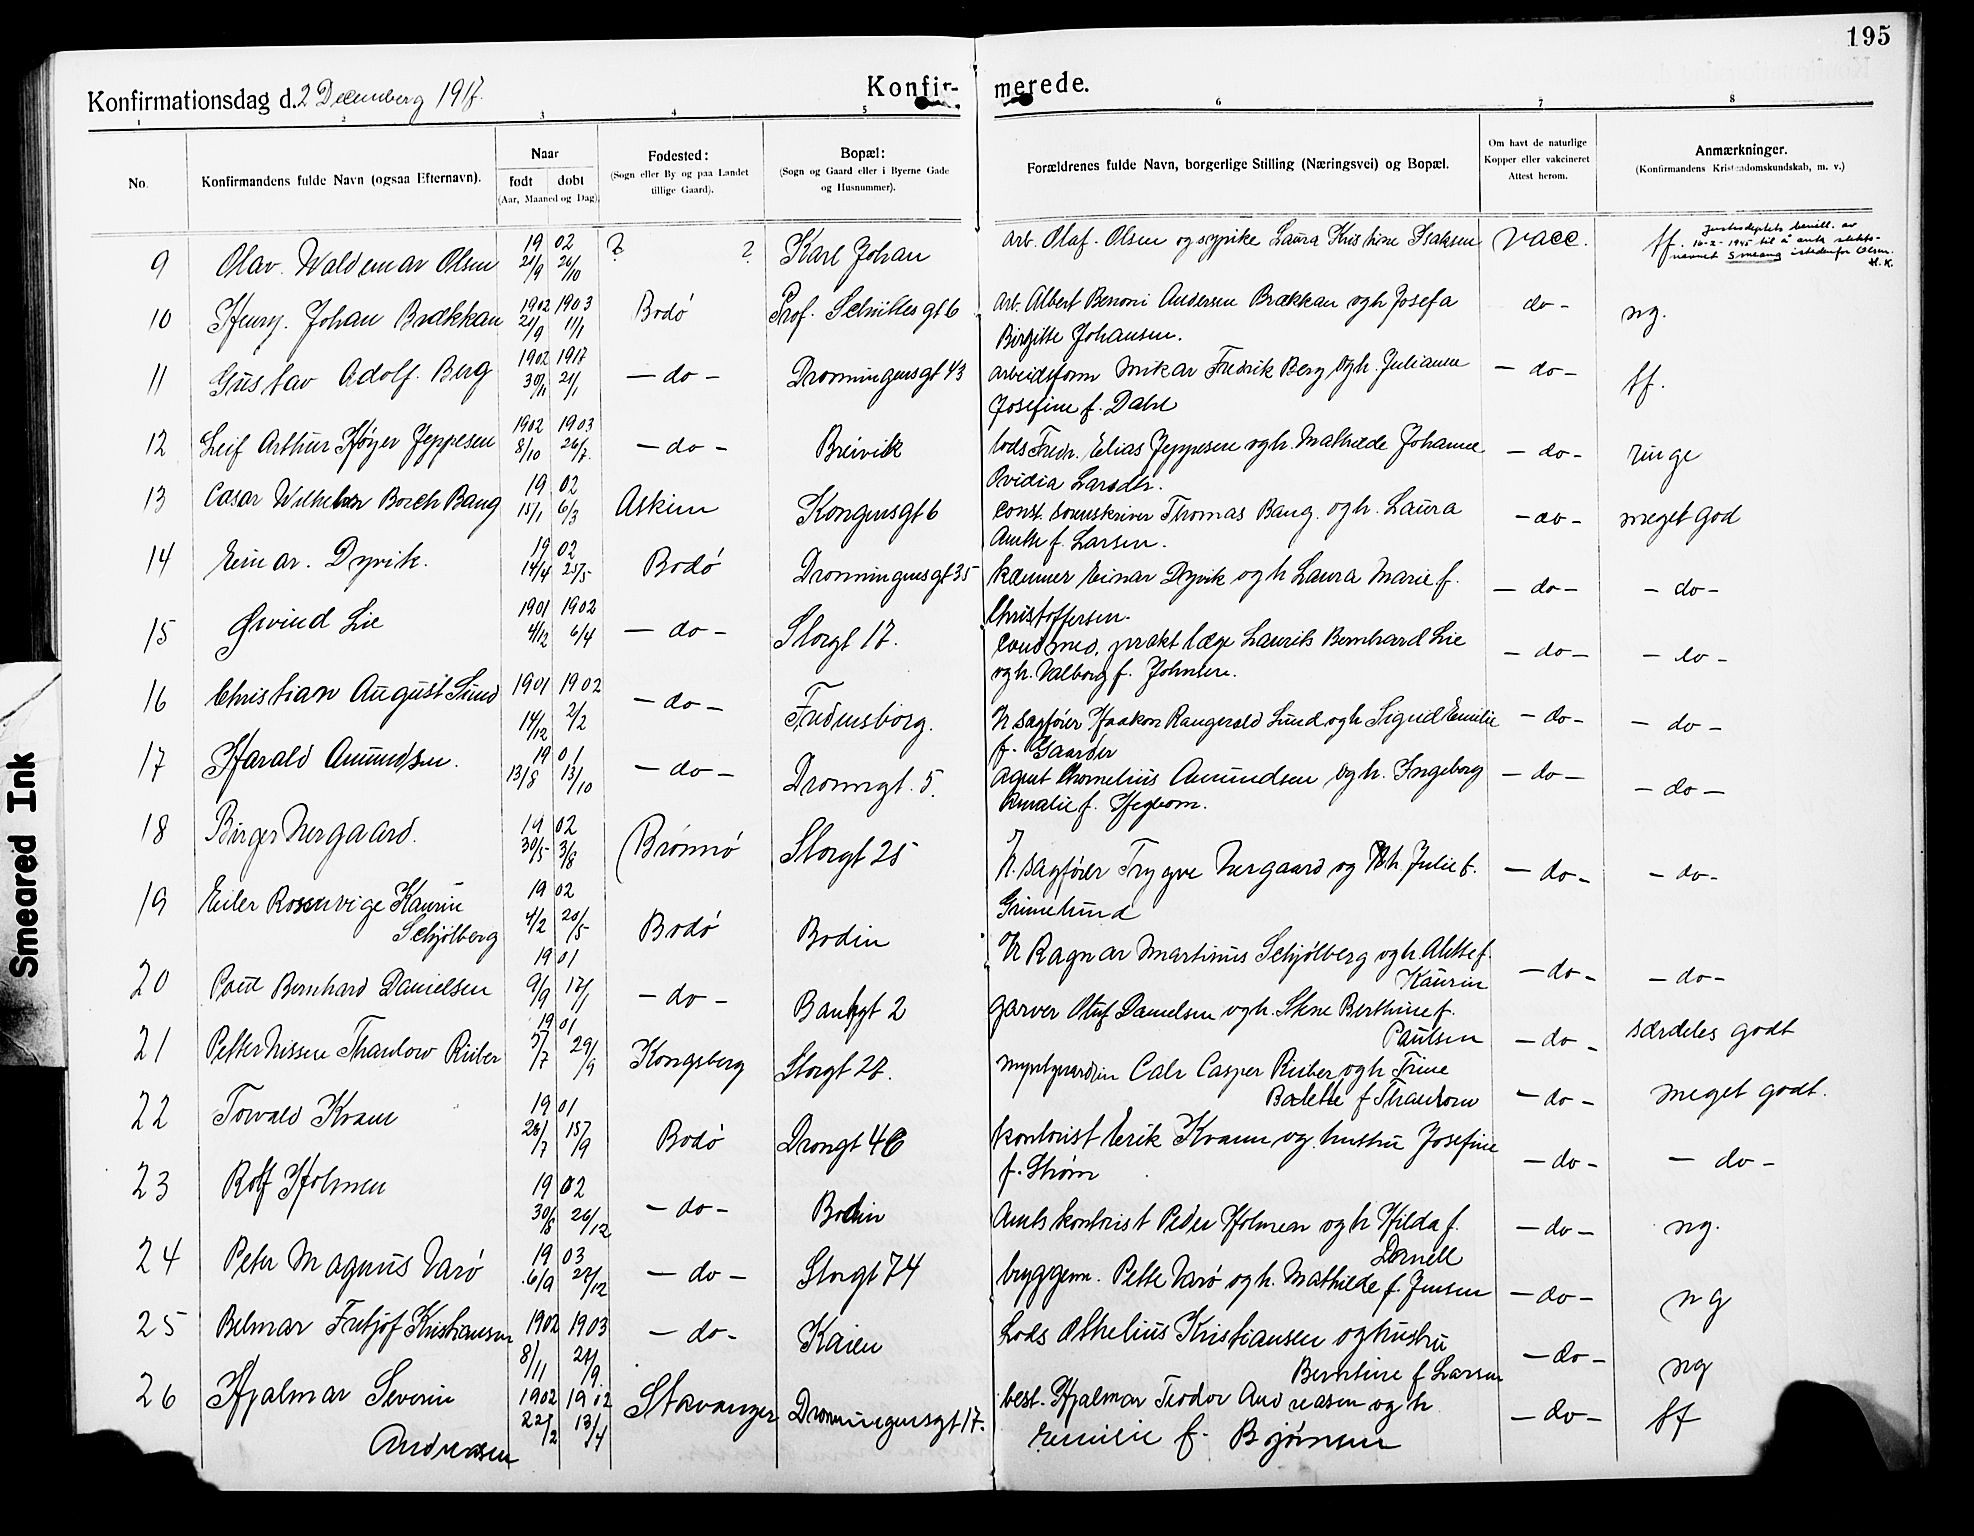 195
Konfirmationsdag d. 2 Decemberg 1917. Konfir- merede.
1 2 3 4 5 6 7 8
No. Konfirmandens fulde Navn (ogsaa Efternavn). Naar født døbt (Aar, Maaned og Dag). Fødested: (Sogn eller By og paa Landet tillige Gaard). Bopæl: (Sogn og Gaard eller i Byerne Gade og Husnummer). Forældrenes fulde Navn, borgerlige Stilling (Næringsvei) og Bopæl. Om havt de naturlige Kopper eller vakcineret Attest herom. Anmærkninger. (Konfirmandens Kristendomskundskab, m. v.)
9 Olav Waldemar Olsen 19 02 21/9 26/10 ? ? Karl Johan arb. Olaf Olsen og Laura Kristine Isaksen vacc. tf. Justisdeptets bevill. av 16-2-1945 til å anta slekts-
navnet Smeang istedenfor Olsen. H.K.
10 Henry Johan Brækkan 1902 1903 21/9 11/1 Bodø Prof. Schüttes gt 6 arb. Albert Benoni Andersen Brækkan og h Josefa
Birgitte Johansen. do - ng.
11 Gustav Adolf Berg 1902 1917 30/11 21/1 - do - Dronningensgt 43 arbeidsform Mikar Fredrik Berg og h. Julianne
Josefine f. Dahl - do - tf.
12 Leif Arthur Høyer Jeppesen 1902 1903 8/10 26/7 - do - Breivik lods Fredr. Elias Jeppesen og h. Mathilde Johanne
Ovidia Larsdtr. - do - ringe
13 Casar Wilhelm Borch Bang 19 02 15/1 6/3 Askim Kongensgt 6 const. sorenskriver Thomas Bang og h. Laura
Anethe f. Larsen. - do - meget god
14 Einar Dyrvik. 19 02 14/4 25/5 Bodø Dronningensgt 35 kæmner Einar Dyrvik og h Laura Marie f.
Christoffersen. - do - - do -
15 Øivind Lie 1901 1902 4/12 6/4 - do - Storgt 17. cand med. prakt læge Laurits Bernhard Lie
og h. Valborg f. Johnsen. - do - - do -
16 Christian August Lund 1901 1902 14/12 2/2 - do - Fredensborg. O.r. sagfører Haakon Rangvald Lund og h Sigrid Emilie
f. Gaarder - do - - do -
17 Harald Amundsen. 19 01 13/8 13/10 - do - Dronngt. 5. agent Chornelius Amundsen og h. Ingeborg
Amalie f. Hegbom. - do - - do -
18 Birger Nergaard. 19 02 30/5 3/8 Brønnø Storgt 25 O.r. sagfører Trygve Nergaard og h. Julie f.
Grimelund - do - - do -
19 Eiler Rosenvige Kaurin
Schjølberg 19 02 4/2 20/5 Bodø Bodin Ragnar Martinus Schjølberg og h. Alette f.
Kaurin - do - - do -
20 Paul Bernhard Danielsen 19 01 9/9 12/1 - do - Bankgt 2 garver Oluf Danielsen og h. Stine Berthine f.
Paulsen - do - særdeles godt
21 Petter Nissen Thaulow Riiber 19 01 5/7 29/9 Kongsberg Storgt 28. myntguardein Carl Casper Riiber og h Trine
Bolette f Thaulow - do - meget godt.
22 Torvald Kvam 19 01 28/7 15/9 Bodø Drongt 46 kontorist Erik Kvam og hustru Josefine
f. Strøm - do - - do -
23 Rolf Holmen 19 02 30/8 26/12 - do - Bodin Amtskontorist Peder Holmen og h Hilda f.
Dornell - do - ng.
24 Peter Magnus Varø 19 03 6/9 27/12 - do - Storgt 74 bryggem. Pette Varø og h. Mathilde f. Jensen - do - ng
25 Belmar Fritjof Kristiansen 1902 1903 8/11 27/9. - do - Kaien Lods Othelius Kristiansen og hustru
Berntine f Larsen - do - ng
26 Hjalmar Severin
Andreasen 1902 1902 22/2 13/4 Stavanger Dronningensgt 17. best. Hjalmar Teodor Andreasen og h
Emilie f. Bjørnsen - do - tf
Smeared Ink